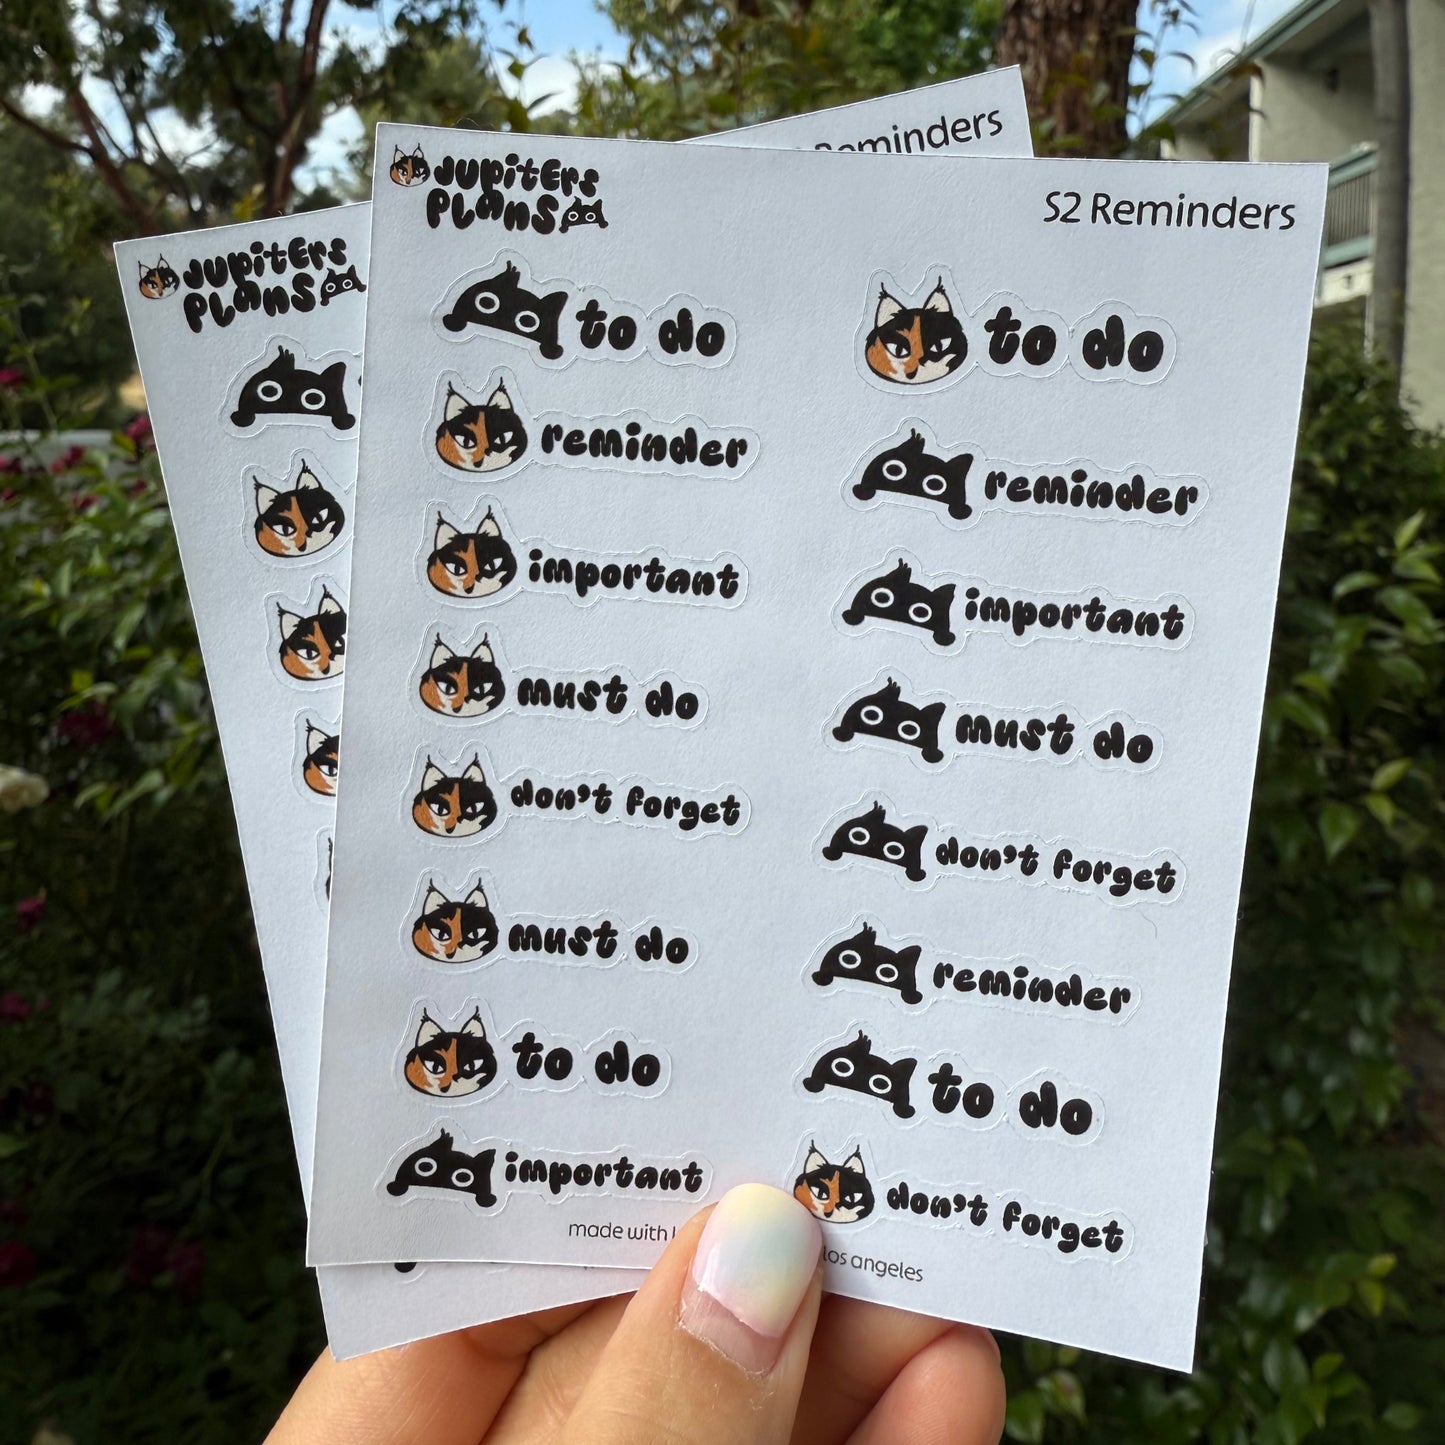 Reminders
JUPITERS
PLANS
S2 Reminders
JUPITERS
PLANS
to do
to do
reminder
reminder
important
important
must do
must do
don't forget
don't forget
must do
reminder
to do
to do
important
don't forget
made with
los angeles